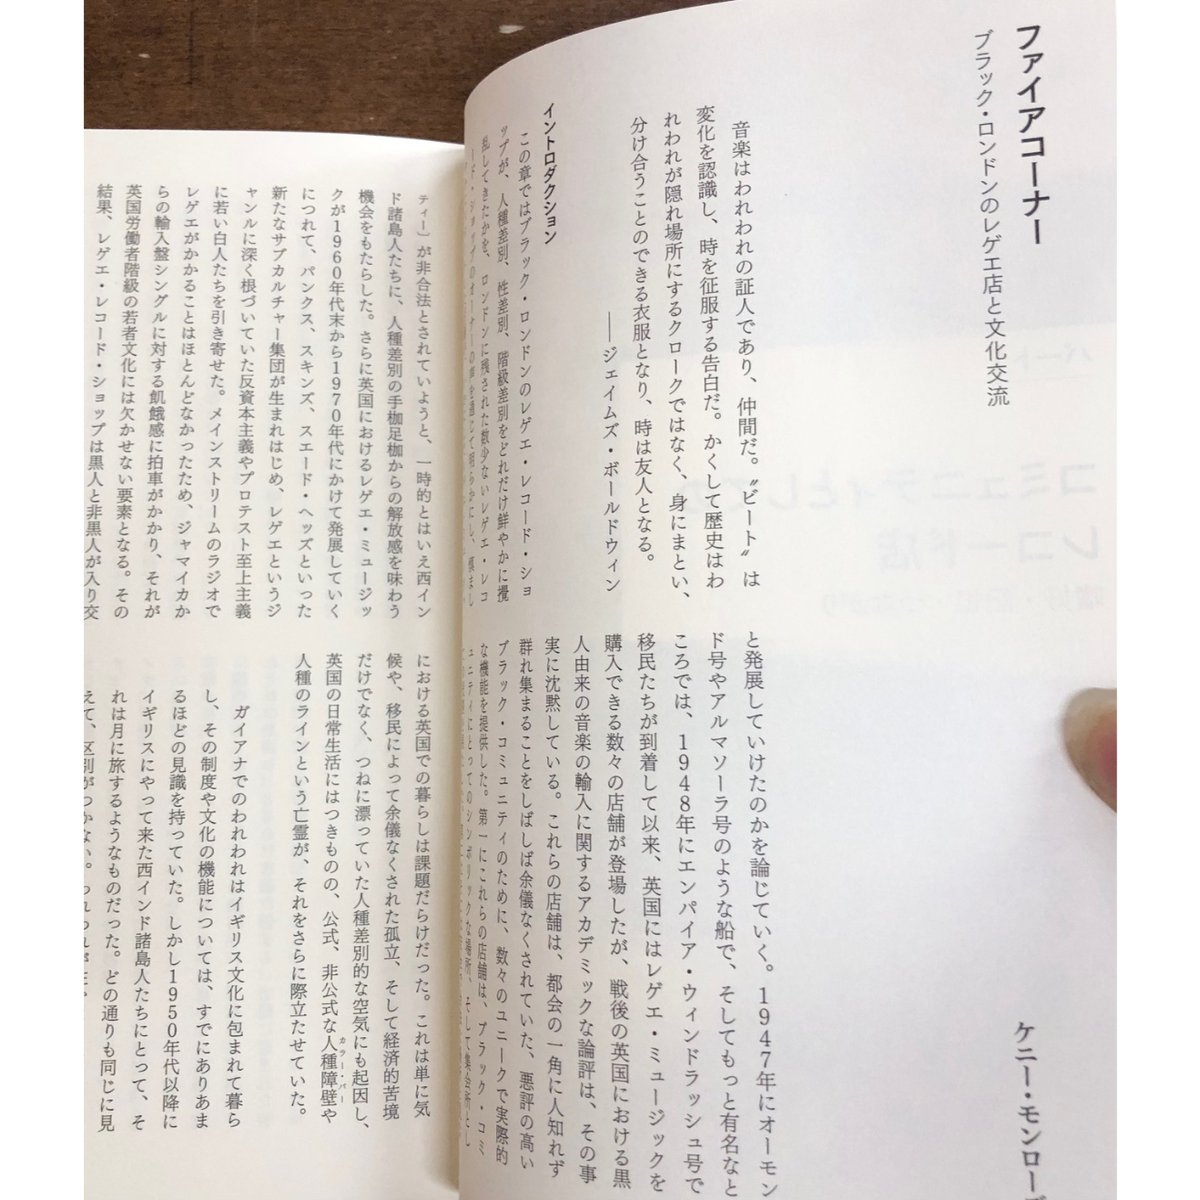 ファイアコーナー
ブラック・ロンドンのレゲエ店と文化交流
ケニー・モンロー
音楽はわれわれの証人であり、仲間だ。〝ビート〟は
変化を認識し、時を征服する告白だ。かくして歴史はわ
れわれが隠れ場所にするクロークではなく、身にまとい、
分け合うことのできる衣服となり、時は友人となる。
――ジェイムズ・ボールドウィン
イントロダクション
この章ではブラック・ロンドンのレゲエ・レコード・ショ
ップが、人種差別、性差別、階級差別をどれだけ鮮やかに攪
乱してきたかを、ロンドンに残された数少ないレゲエ・レコ
ード・ショップのオーナーの声を通じて明らかにし、
と発展していけたのかを論じていく。1947年にオーモン
ド号やアルマソーラ号のような船で、そしてもっと有名なと
ころでは、1948年にエンパイア・ウィンドラッシュ号で
移民たちが到着して以来、英国にはレゲエ・ミュージックを
購入できる数々の店舗が登場したが、戦後の英国における黒
人由来の音楽の輸入に関するアカデミックな論評は、その事
実に沈黙している。これらの店舗は、都会の一角に人知れず
群れ集まることをしばしば余儀なくされていた、悪評の高い
ブラック・コミュニティのために、数々のユニークで実際的
な機能を提供した。第一にこれらの店舗は、ブラック・コミ
ュニティにとってのシンボリックな場所、そして集会所とし
ティー）が非合法とされていようと、一時的とはいえ西イン
ド諸島人たちに、人種差別の手枷足枷からの解放感を味わう
機会をもたらした。さらに英国におけるレゲエ・ミュージッ
クが1960年代末から1970年代にかけて発展していく
につれて、パンクス、スキンズ、スエード・ヘッズといった
新たなサブカルチャー集団が生まれはじめ、レゲエというジ
ャンルに深く根づいていた反資本主義やプロテスト至上主義
に若い白人たちを引き寄せた。メインストリームのラジオで
レゲエがかかることはほとんどなかったため、ジャマイカか
らの輸入盤シングルに対する飢餓感に拍車がかかり、それが
英国労働者階級の若者文化には欠かせない要素となる。その
結果、レゲエ・レコード・ショップは黒人と非黒人が入り交
における英国での暮らしは課題だらけだった。これは単に気
候や、移民によって余儀なくされた孤立、そして経済的苦境
だけでなく、つねに漂っていた人種差別的な空気にも起因し、
英国の日常生活にはつきものの、公式、非公式な人種障壁や
カラー・バー
人種のラインという亡霊が、それをさらに際立たせていた。
ガイアナでのわれわれはイギリス文化に包まれて暮ら
し、その制度や文化の機能については、すでにありあま
るほどの見識を持っていた。しかし1950年代以降に
イギリスにやって来た西インド諸島人たちにとって、そ
れは月に旅するようなものだった。どの通りも同じに見
えて、区別がつかない。